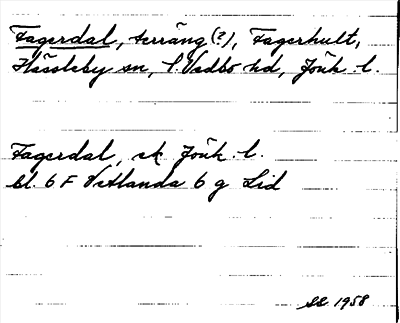 Fagerdal, terräng (?), Fagerhult,
Hässleby sn, S. Vedbo hd, Jönk. l.
Fagerdal, ek Jönk. l.
bl. 6 F Vetlanda 6 g Lid
1958